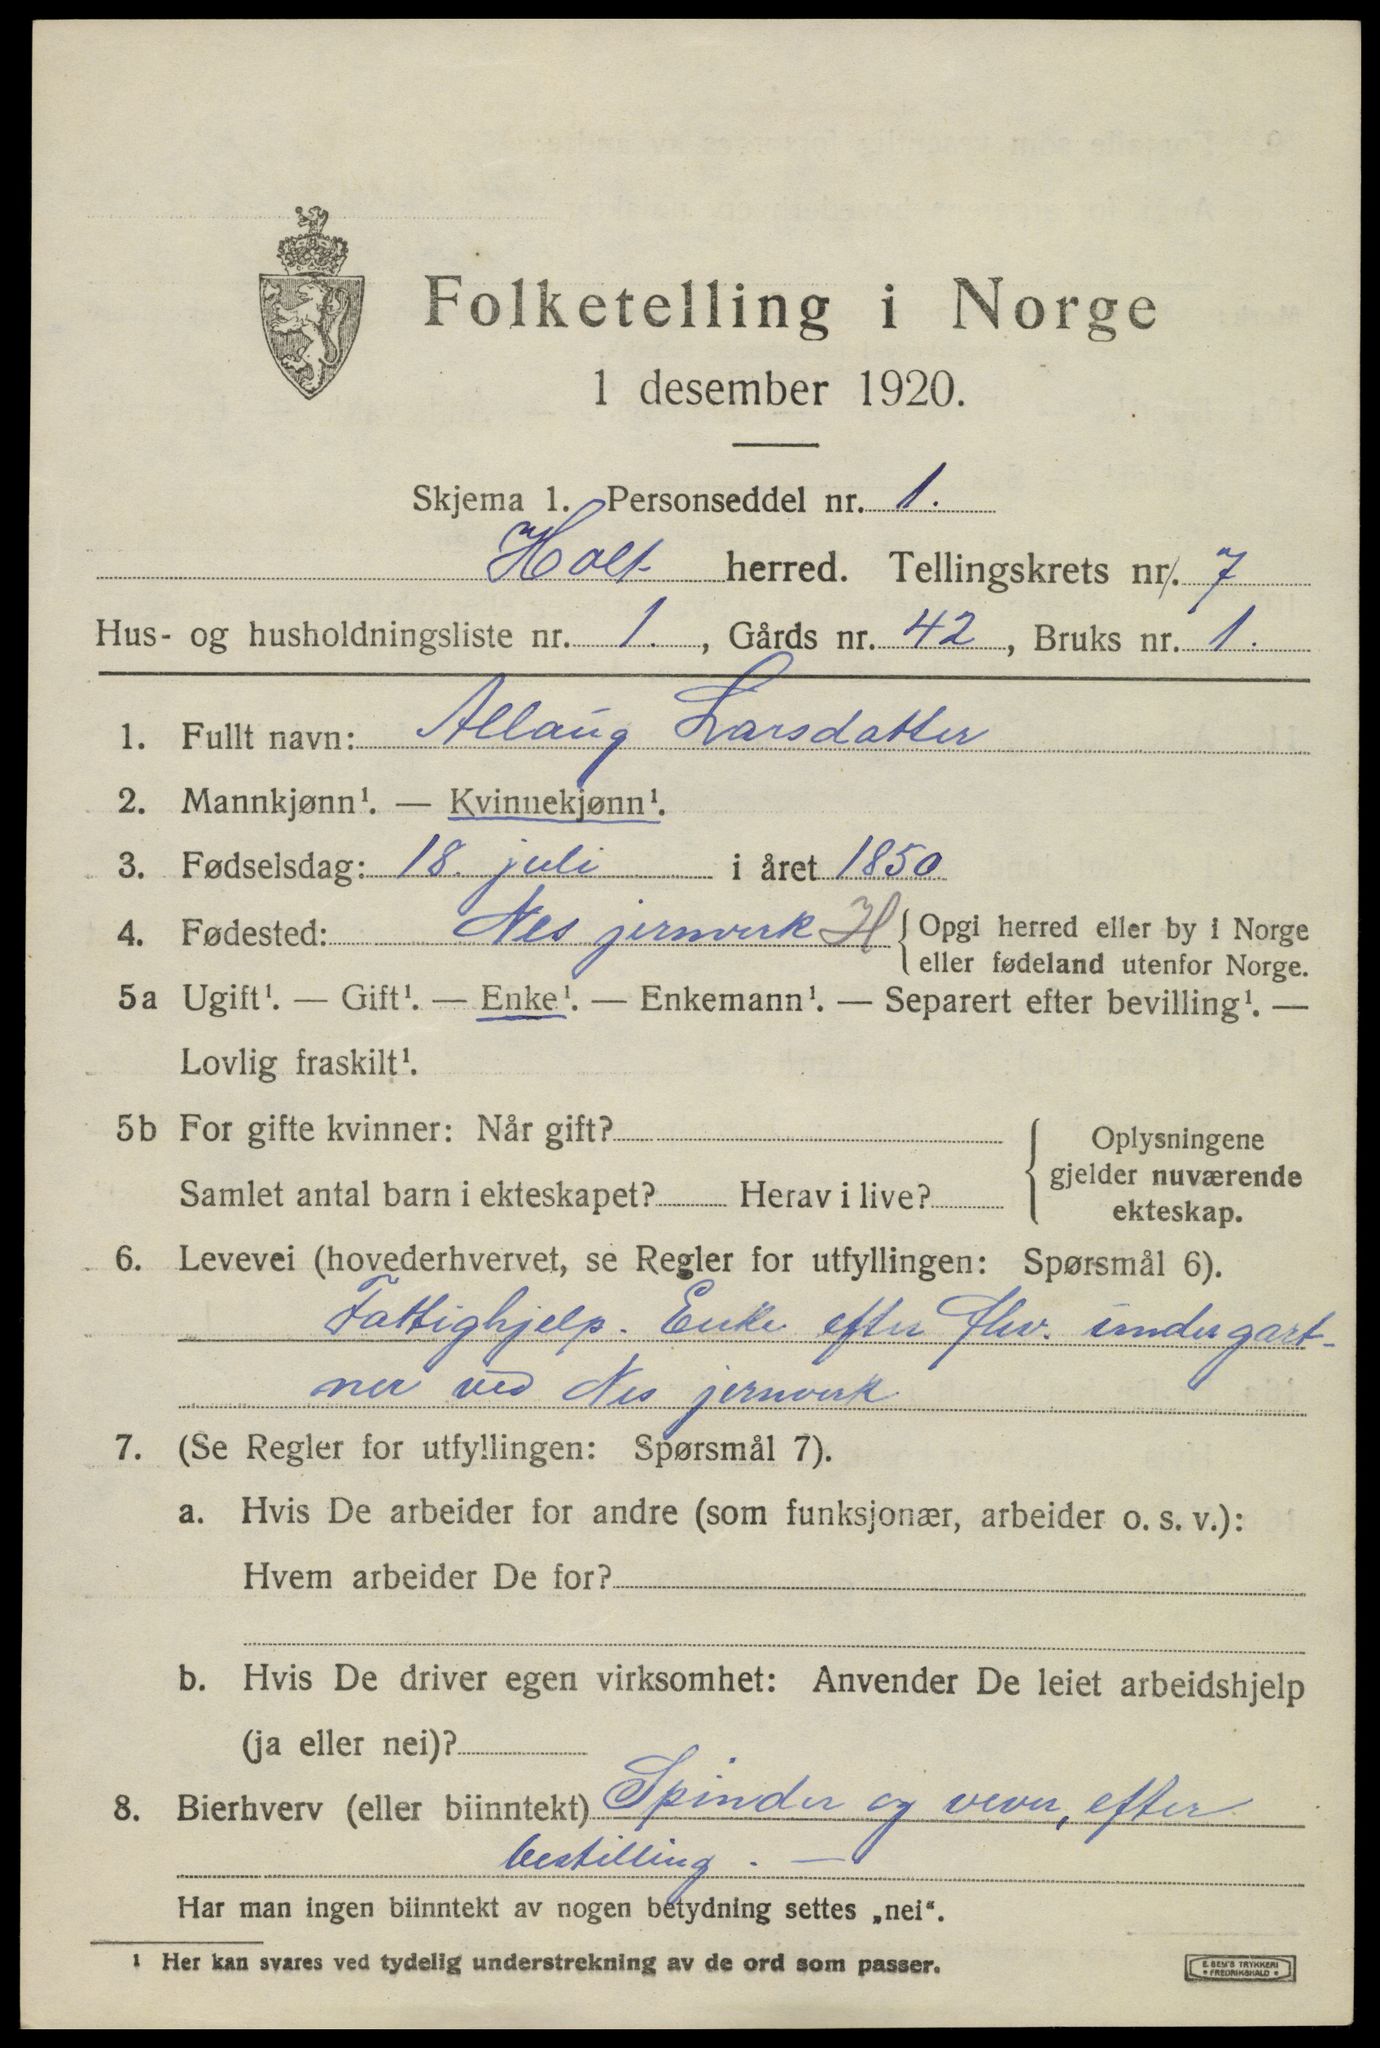 Folketelling i Norge
1 desember 1920.
Skjema 1. Personseddel nr. 1.
Holt herred. Tellingskrets nr. 7
Hus- og husholdningsliste nr. 1., Gårds nr. 42, Bruks nr. 1.
1. Fullt navn: Allaug Larsdatter
2. Mannkjønn¹. — Kvinnekjønn¹.
3. Fødselsdag: 18. juli i året 1850
4. Fødested: Nes jernverk H { Opgi herred eller by i Norge
eller fødeland utenfor Norge.
5a Ugift¹. — Gift¹. — Enke¹. — Enkemann¹. — Separert efter bevilling¹. —
Lovlig fraskilt¹.
5b For gifte kvinner: Når gift?
Samlet antal barn i ekteskapet? Herav i live?
Oplysningene
gjelder nuværende
ekteskap.
6. Levevei (hovederhvervet, se Regler for utfyllingen: Spørsmål 6).
Fattighjelp. Enke efter fhv. undergart-
ner ved Nes jernverk
7. (Se Regler for utfyllingen: Spørsmål 7).
a. Hvis De arbeider for andre (som funksjonær, arbeider o. s. v.):
Hvem arbeider De for?
b. Hvis De driver egen virksomhet: Anvender De leiet arbeidshjelp
(ja eller nei)?
8. Bierhverv (eller biinntekt) Spinder og vever, efter
bestilling. —
Har man ingen biinntekt av nogen betydning settes „nei“.
¹ Her kan svares ved tydelig understrekning av de ord som passer.
E. SEM'S TRYKKERI
• FREDRIKSHALD •